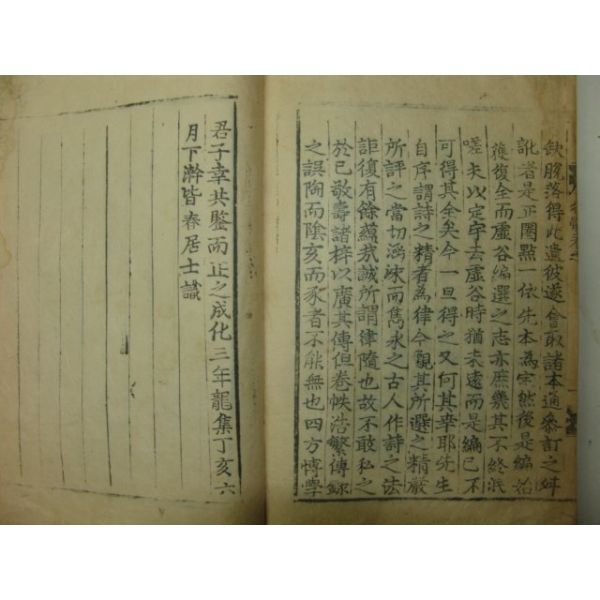 缺脫落得此遺彼遂會取諸本通叅訂之舛
訛者是正圈點一依先本為宗然後是編始
獲復全而虛谷編選之志亦庶幾其不終泯
嗟夫以定宇去虛谷時猶未遠而是編已不
可得其全矣今一旦得之又何其幸耶先生
自序謂詩之精者為律今觀其所選之精嚴
所評之當切涵泳而雋永之古人作詩之法
詎復有餘蘊哉誠所謂律隨也故不敢私之
於已敬壽諸梓以廣其傳但卷帙浩繁傳錄
之誤陶而陰亥而豕者不能無也四方博學
君子幸共鑒而正之成化三年龍集丁亥六
月下澣皆春居士識